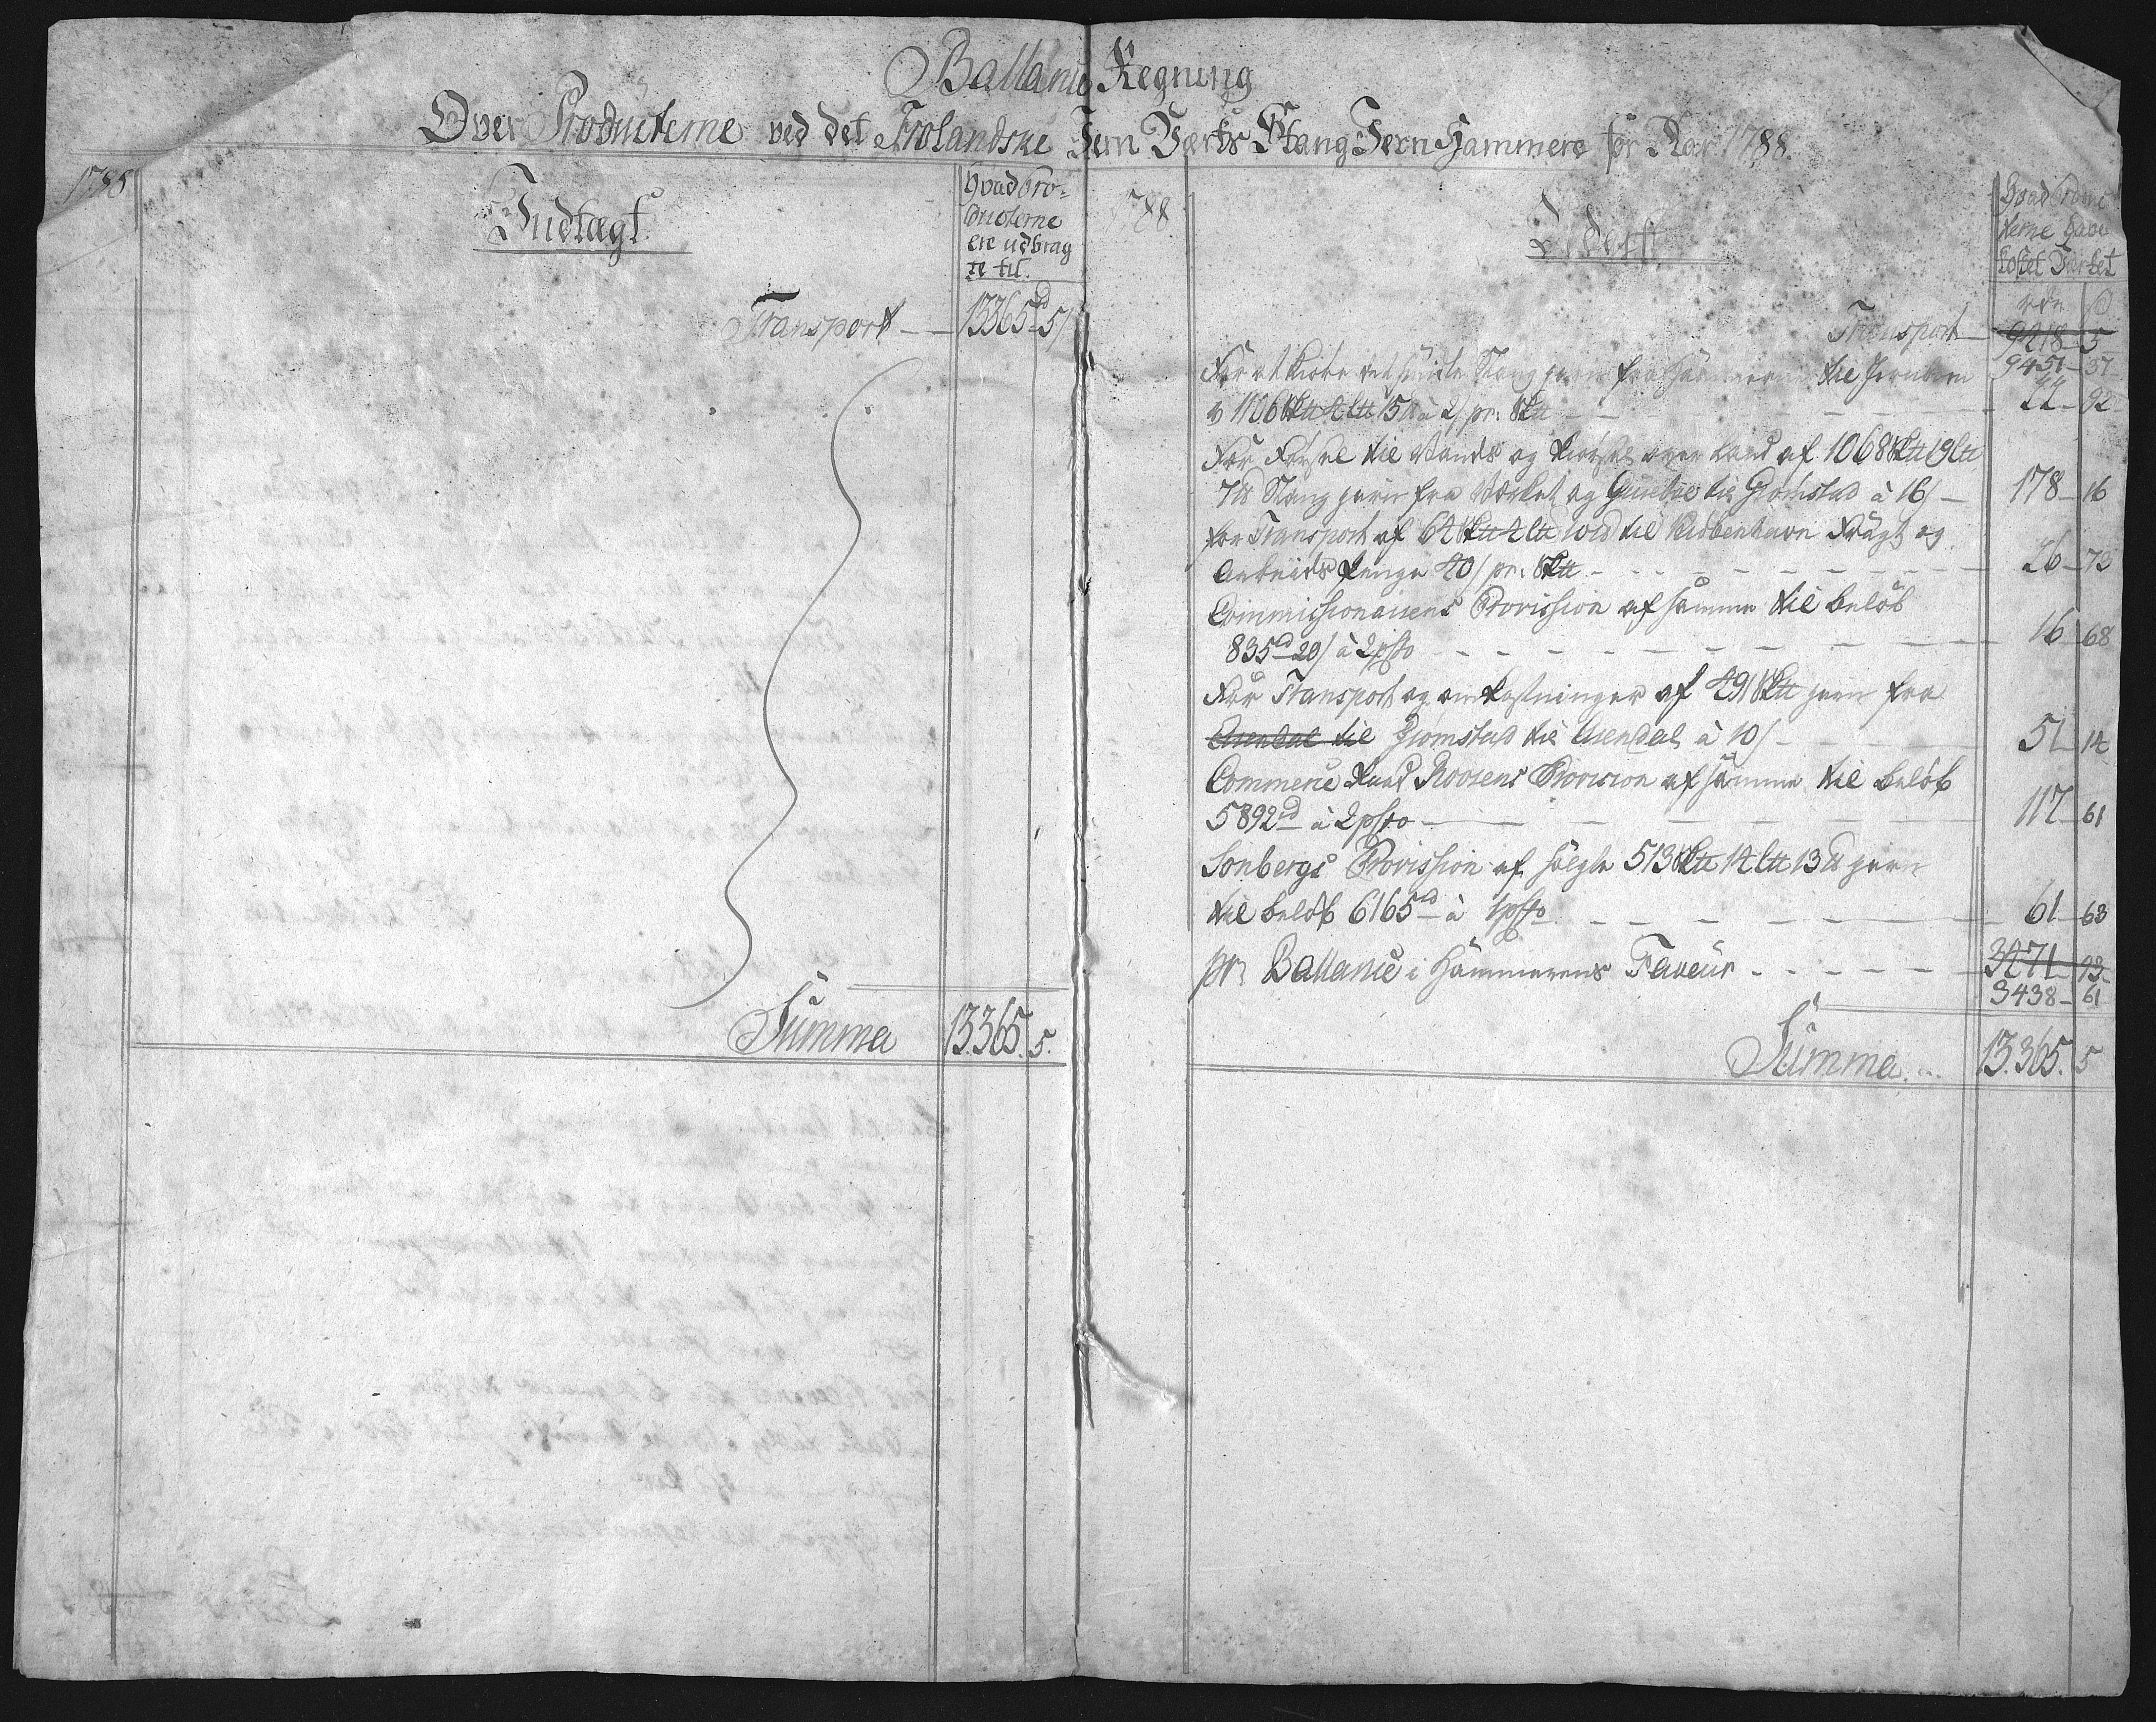 Ballance Regning
Over Producterne ved det Frolandske Jern Værks Stang Jern Hammere for Aar 1788.
1788
Indtægt
Hvad Pro-
ducterne
ere udbrag
te til.
Transport — 13365 rd 5 /
Summa 13.365. 5.
1788
Udgift
Hvad Produc
terne have
kostet Værket
rdr /
Transport — 9218 - 5
9451 - 37
For at kiøre Stang jern fra Hammerne til
1106 Sk℔ 4 L℔ 15 ℔ à 2 / pr: Sk℔ - - - 22 - 92
For Førsel til Vands og kiørsel over Land af 1068 Sk℔ 19 L℔
7 ℔ Stang jern fra Værket og til Grømstad à 16 / — 178 - 16
for Transport af 64 Sk℔ 4 L℔ til Kiøbenhavn Fragt og
Arbeids Penge 40 / pr: Sk℔ - - - 26 - 73
Commissionairens Provission af samme til beløb
835 rd 20 / à 2 pCto - - - 16 68
For Transport og omkostninger af 491 Sk℔ jern fra
Arendal til Grømstad til Arendal à 10 / - - - 51 - 14
Commerce Raad Provision af samme til beløb
5892 rd à 2 pCto — 117 - 61
Sonbergs Provission af solgte 513 Sk℔ 14 L℔ 13 ℔ jern
til beløb 6165 rd à 1 pCto - - - 61 - 63
pr Ballance i Hammerens Faveur - - - 3471 - 93
3438 - 61
Summa. .. 13.365. 5